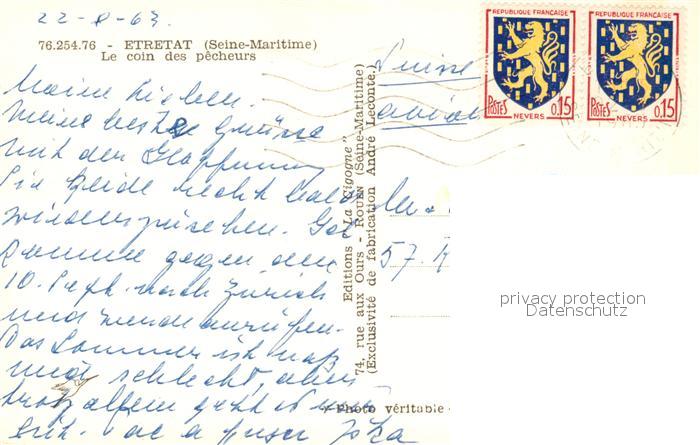 22-8-63.
76.254.76 - ETRETAT (Seine-Maritime)
Le coin des pêcheurs
Meine Lieben.
Meine besten Grüsse
mit der Hoffnung
Sie beide recht bald
wiederzusehen.
komme gegen den
10. Sept. nach Zürich
und werde anrufen.
Das Sommer ist nass
und schlecht, aber
trotz allem geht es
Editions "La Cigogne"
74, rue aux Ours - ROUEN (Seine-Maritime)
(Exclusivité de fabrication André Leconte.)
Photo véritable
Suisse
avion
57.
REPUBLIQUE FRANÇAISE
POSTES
0,15
NEVERS
REPUBLIQUE FRANÇAISE
POSTES
0,15
NEVERS
privacy protection
Datenschutz